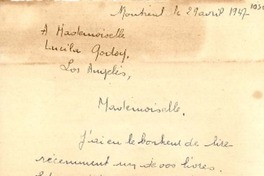 Montréal le 29 avril 1947
A Mademoiselle
Lucila Godoy,
Los Angelès,
Mademoiselle,
J'ai eu le bonheur de lire
récemment un de vos livres.